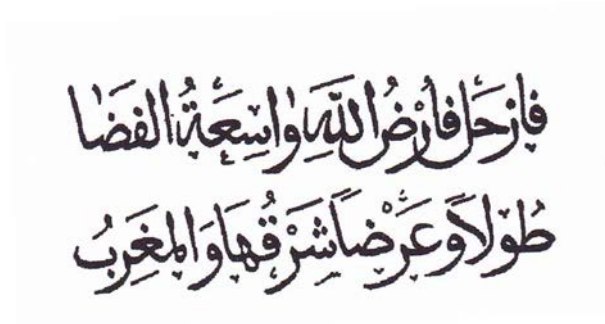 فارْحَل فأرْضُ اللَّهِ واسِعَةُ الفَضَا
طُولاً وعَرْضاً شَرْقُها وَالمغرِبُ